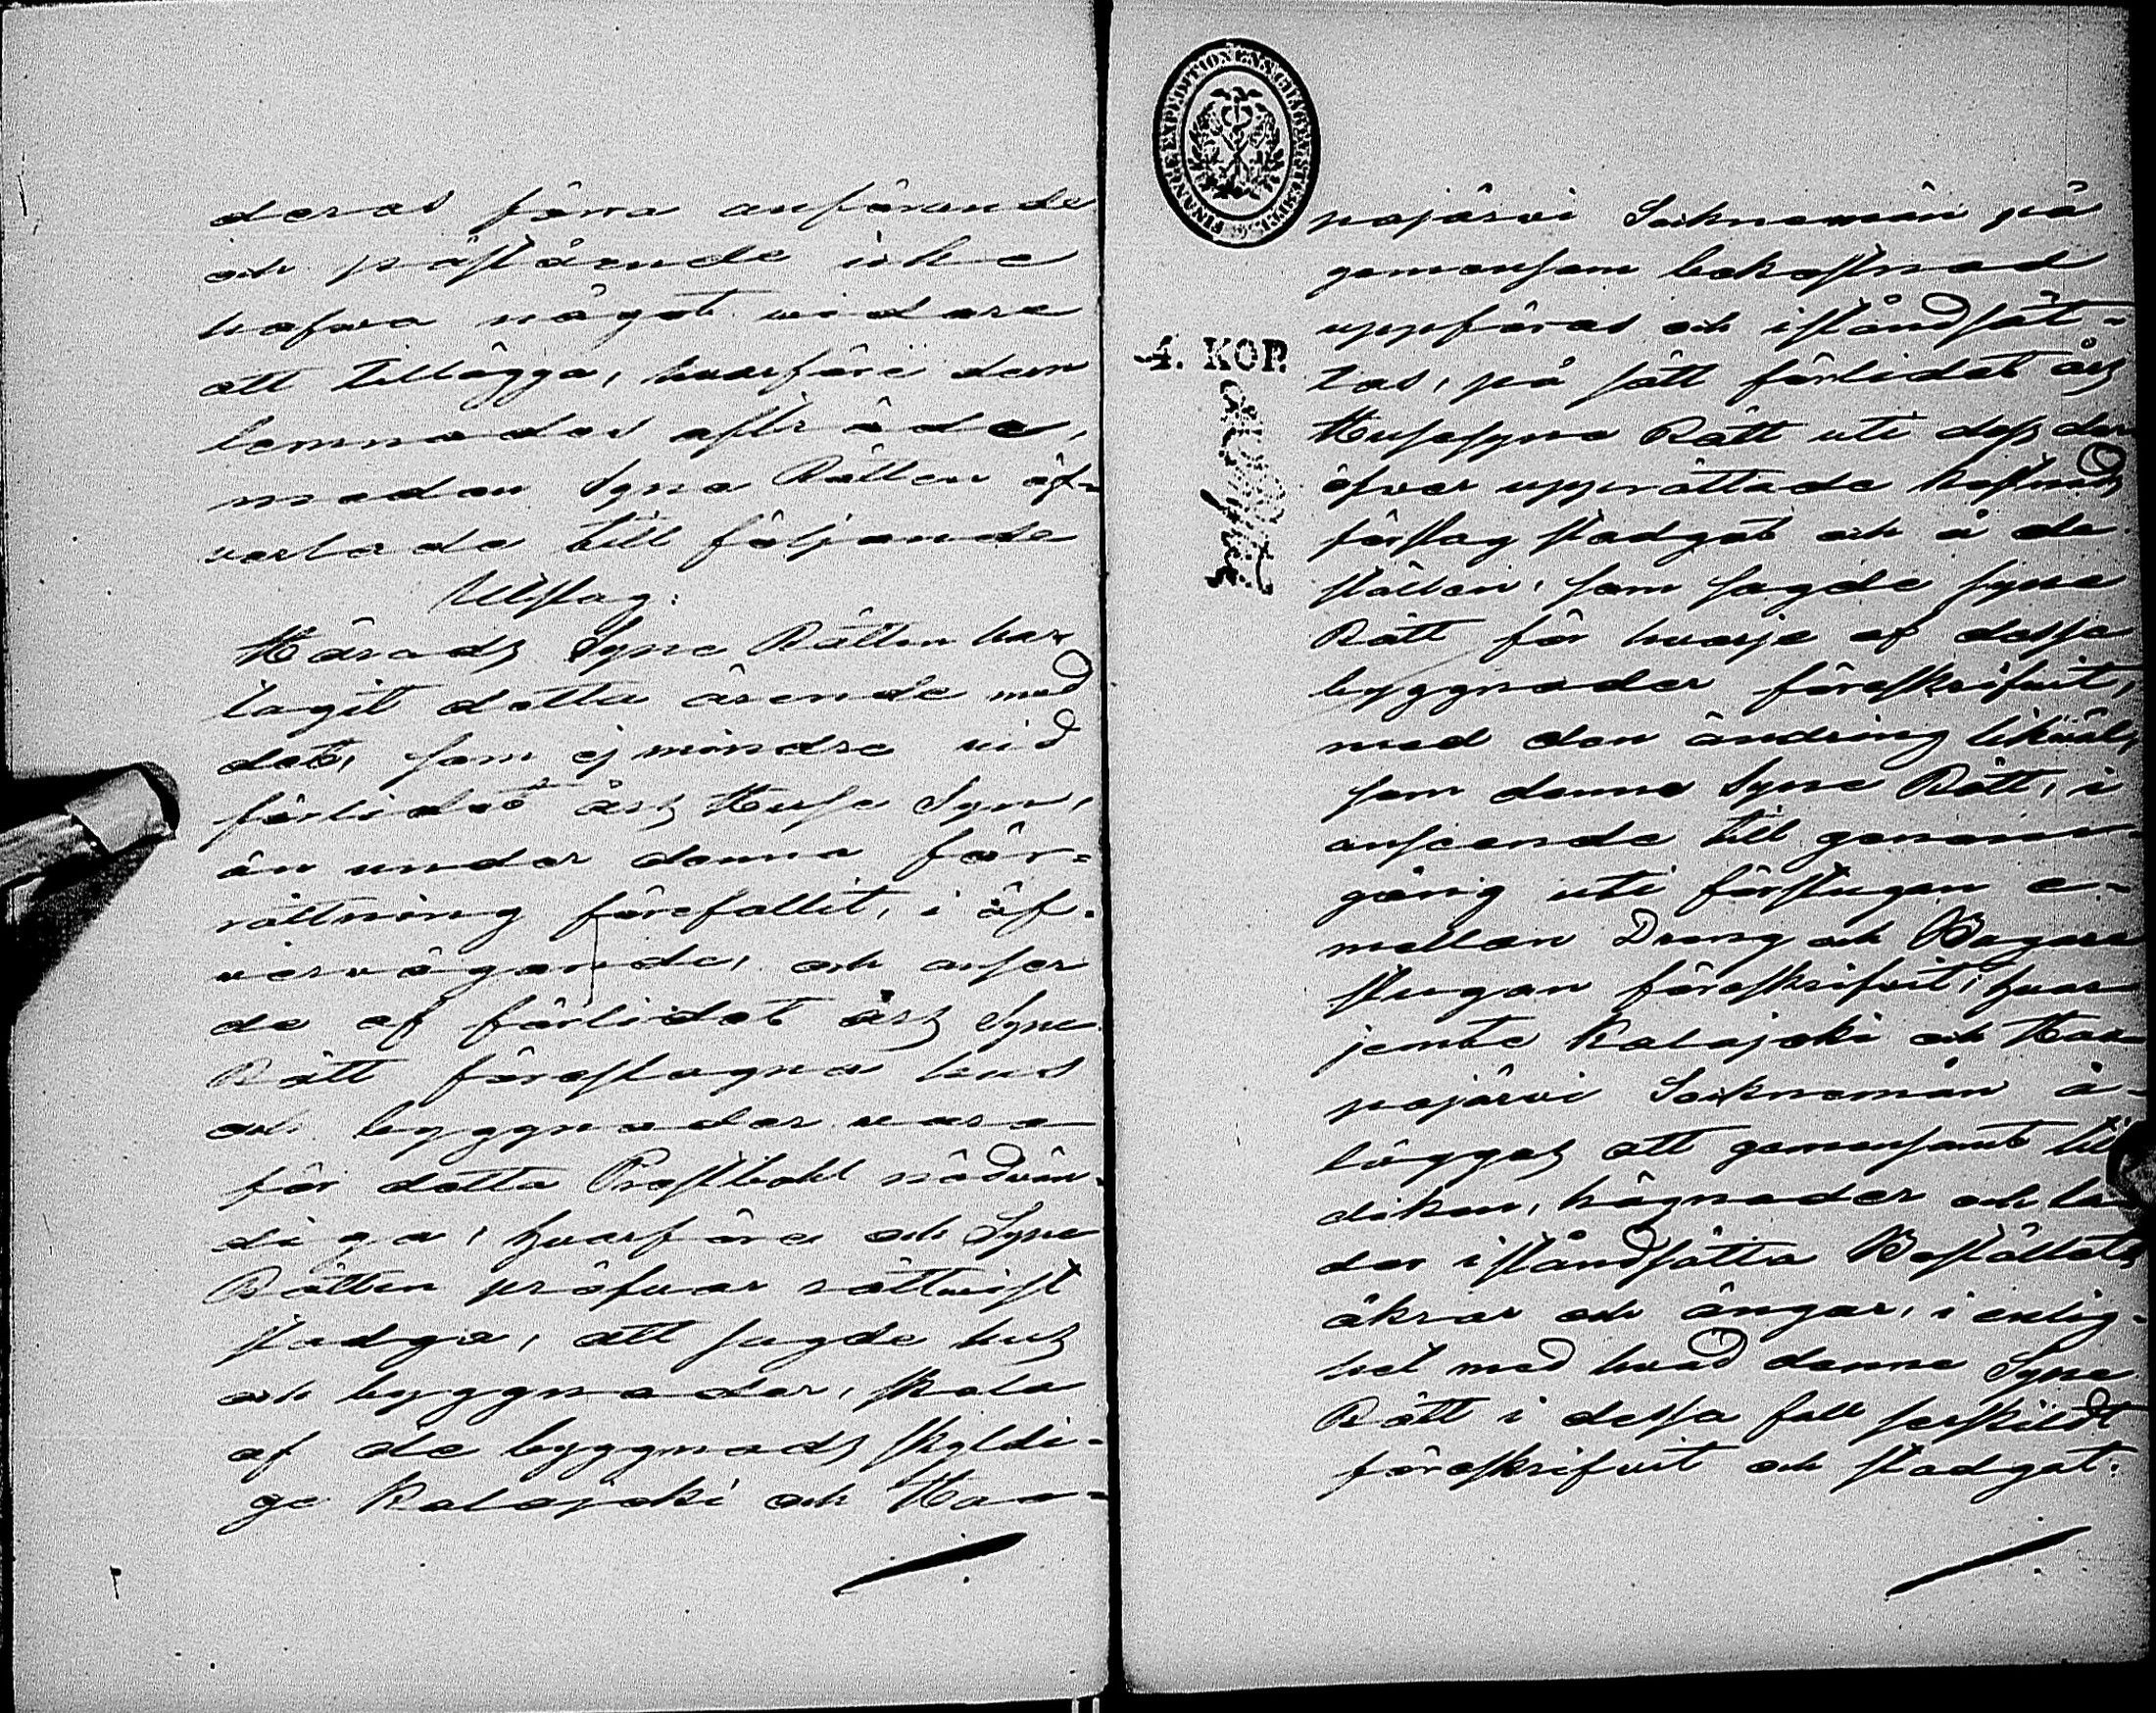 deras förra anförande
och påstående icke
hafwa något widare
att tillägga, hwarföre dem
lemnades afträde,
medan Syne Rätten öf-
werlade till följande
Utslag:
Härads Syne Rätten har
tagit detta ärende med
det, som ej mindre wid
förlidet års Huse Syn,
än under denna för-
rättning förefallit, i öf-
werwägande, och anser
de af förlidet års Syne
Rätt föreslagna hus
och byggnader wara
för detta Prestbohl nödwän-
diga, hwarföre och Syne
Rätten pröfwar rättwist
stadga, att sagde hus
och byggnader, skola
af de byggnads skyldi-
ge Kalajoki och Haa-
FINANCE EXPEDITIONENS
4. KOP.
pajärwi Sockneman på
gemensam bekostnad
uppföras och iståndsät-
tas, på sätt förlidet års
Husesyne Rätt uti dess der
öfwer upprättade kostnads
förslag stadgat och å de
ställen, som sagde Syne
Rätt för hwarje af dessa
byggnader föreskrifwit,
med den ändring likwäl,
som denne Syne Rätt, i
anseende till genom-
gång uti förstugan e-
mellan Dräng och Bagare
stugan föreskrifwit; hwar
jemte Kalajoki och Haa-
pajärwi Sockneman å-
lägges att gemensamt till
diken, hägnader och
der iståndsätta Boställets
åkrar och ängar, i enlig-
het med hwad denne Syne
Rätt i dessa fall serskildt
föreskrifwit och stadgat.